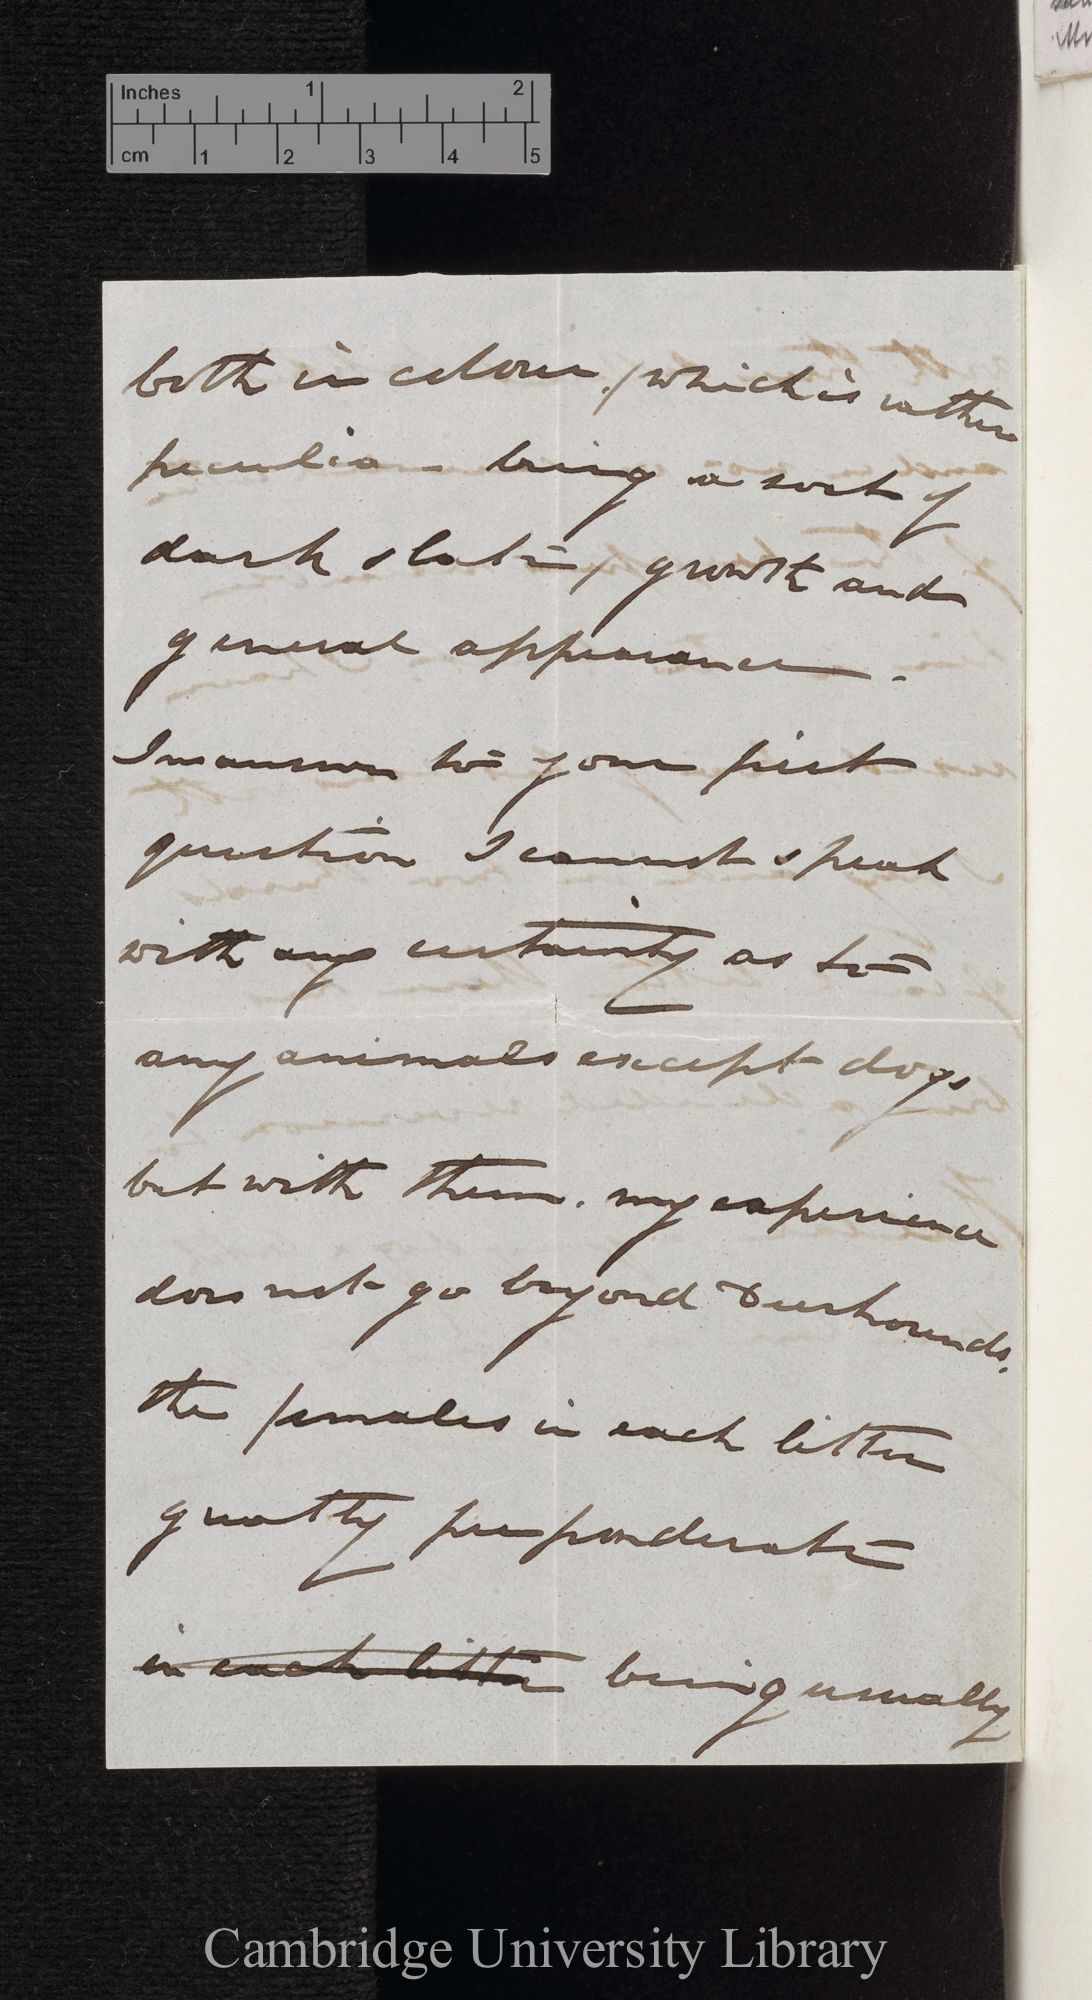 Inches 1 2
cm 1 2 3 4 5
both in colour, (which is rather
peculiar being a sort of
dark slate, growth and
general appearance.
In answer to your first
question I cannot speak
with any certainty as to
any animals except dogs
but with them. my experience
does not go beyond Deerhounds.
the females in each litter
greatly preponderate
in each litter being usually
Cambridge University Library